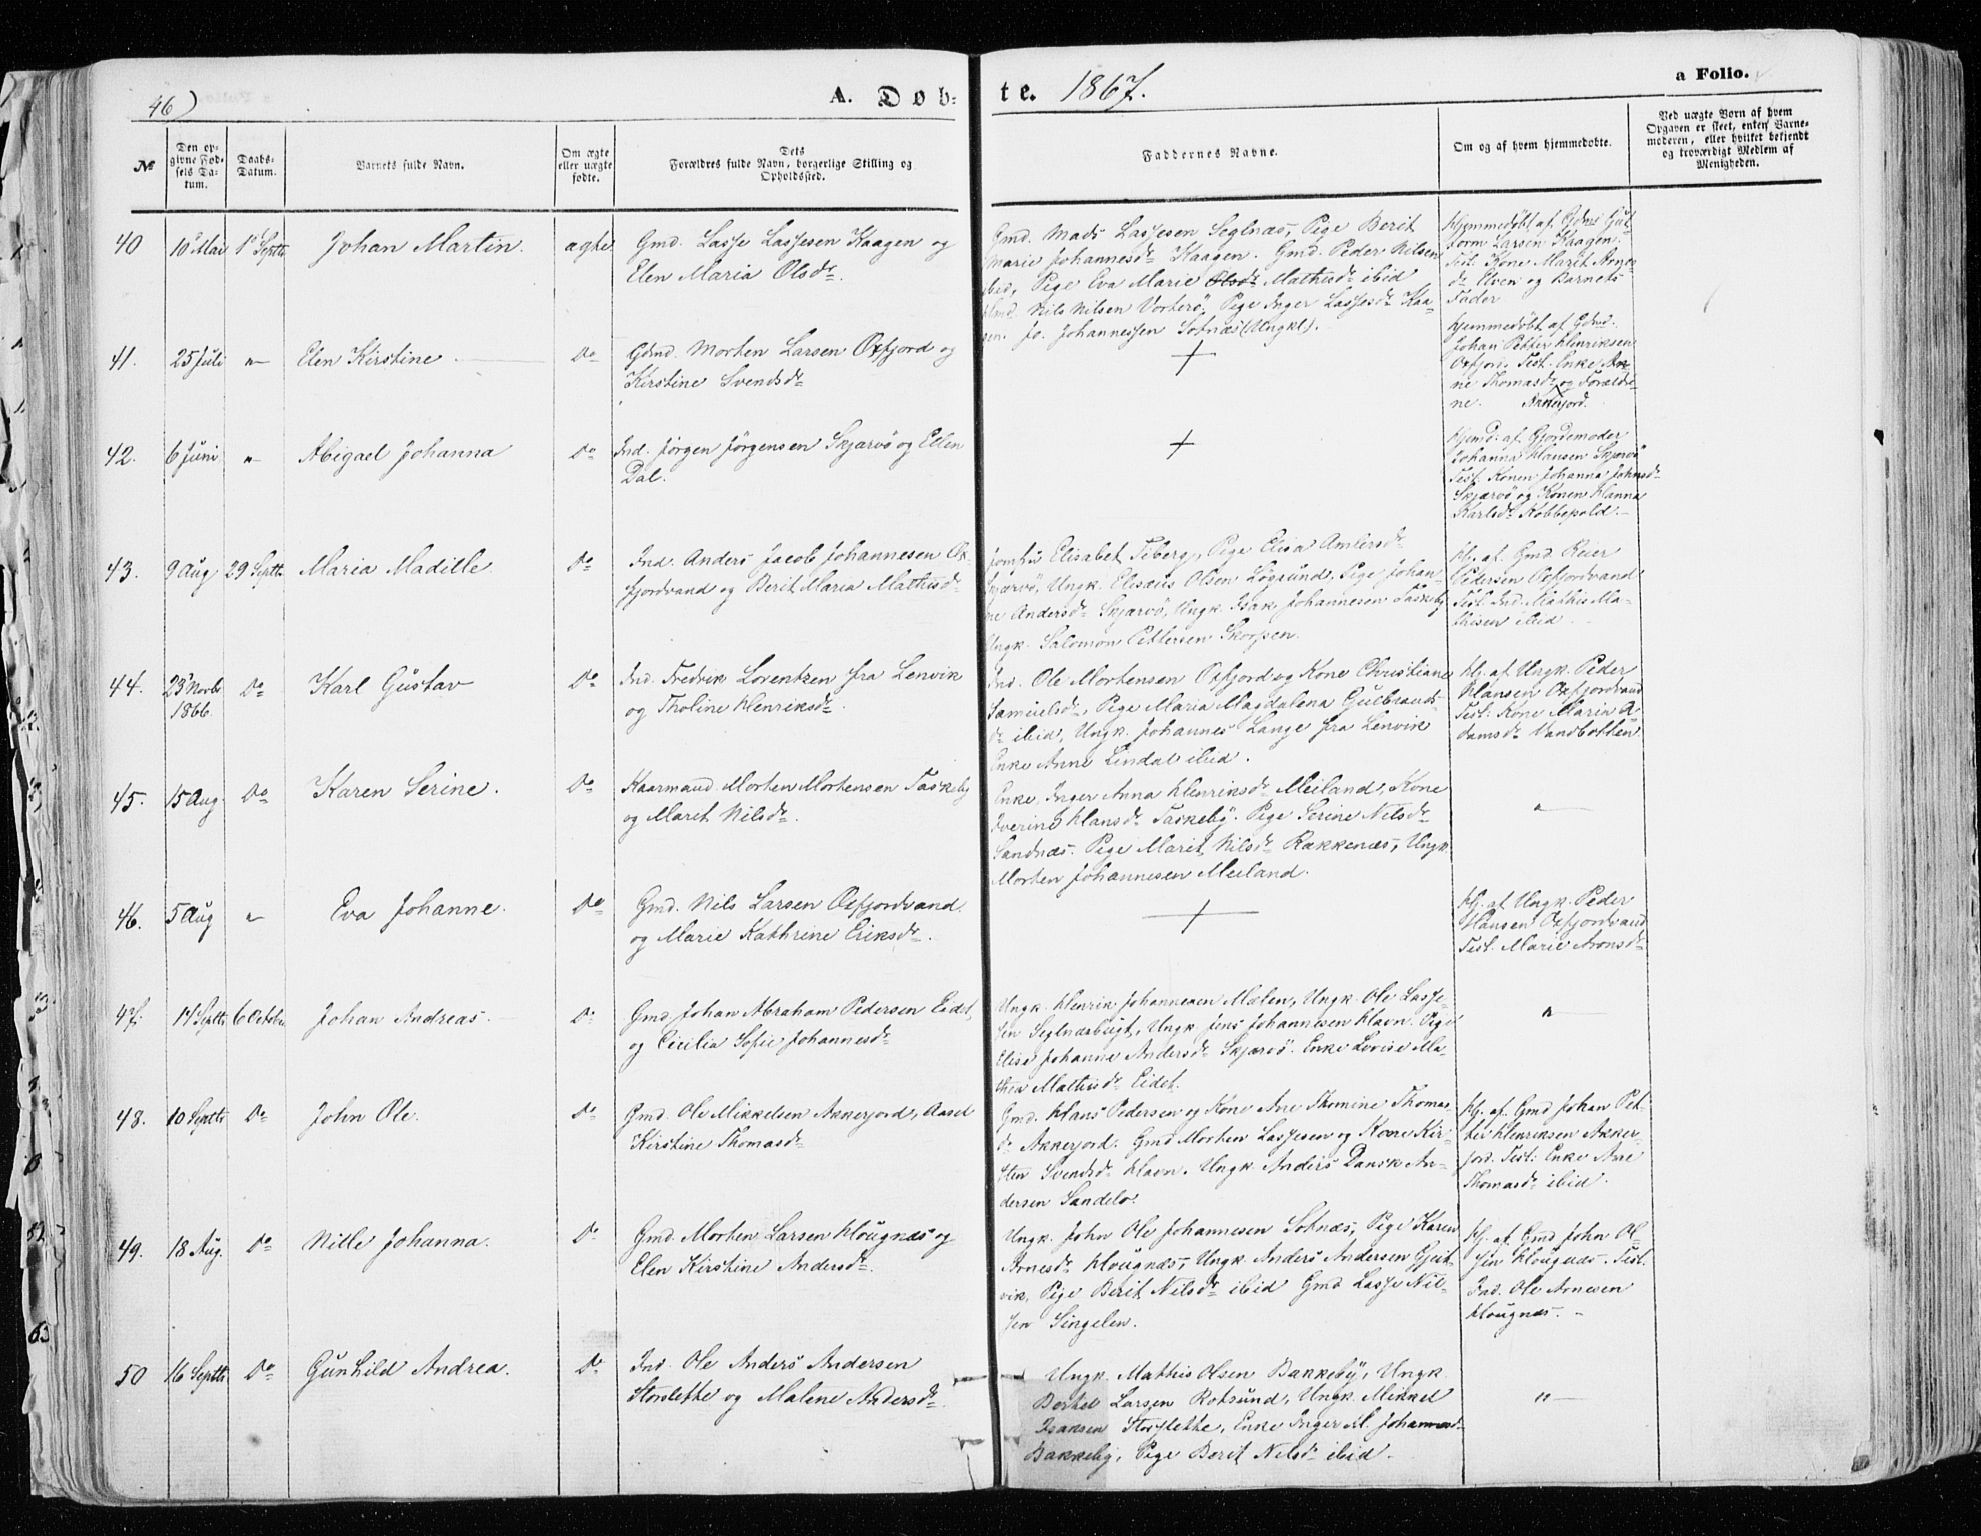 46)
A. Døb-
te. 1867.
a Folio.
No
Den op-
givne Fød-
sels Da-
tum.
Daabs-
Datum.
Barnets fulde Navn.
Om ægte
eller uægte
fødte.
Dets
Forældres fulde Navn, borgerlige Stilling og
Opholdssted.
Faddernes Navne.
Om og af hvem hjemmedøbte.
Ved uægte Børn af hvem
Opgaven er skeet, enten Barne-
moderen, eller hvilket bekjendt
og troværdigt Medlem af
Menigheden.
40
10 Mai
1 Septbr
Johan Martin.
ægte
Gmd. Lasse Lassesen Kaagen og
Elen Maria Olsdr.
Gmd. Mads Lassesen Seglnæs, Pige Berit
Marie Johannesdr Kaagen. Gmd. Peder Nilsen
ibid, Pige Eva Marie Olsdr Mathisdr ibid
Gmd. Nils Nilsen Vorterö, Pige Inger Lassesdr Kaa-
gen. Jo. Johannessen Sotnæs (Ungkl).
Hjemmedøbt af Gdmd Gut-
torm Larsen Kaagen.
Test: Kone Marit Arnes-
dr Elven og Barnets
Fader
41.
25 Juli
"
Elen Kirstine
Do
Gdmd. Morten Larsen Oxfjord og
Kirstine Svendsdr
+
Hjemmedøbt af Gdmd.
Johan Petter Henriksen
Oxfjord. Test. Enke An-
ne Thomasdr og Forældre-
ne. Akkerfjord.
42.
6 Juni
"
Abigael Johanna
Do
Ind. Jörgen Jörgensen Skjærvö og Ellen
Dal.
+
Hjemd. af Gjordemoder
Johanna Hansen Skjærvö
Test. Konen Johanna Johnsdr
Skjærvö og Konen Hanna
Karlsdr Kobbepold.
43.
9 Aug
29 Septbr
Maria Madille
Do
Ind. Anders Jacob Johannesen Ox-
fjordvand og Berit Maria Mathisdr
Jomfru Elisabet Fiberg, Pige Elisa Amlersdr
Skjærvö, Ungk. Elisæus Olsen Lögsund, Pige Johan-
ne Andersdr Skjærvö, Ungk. Isak Johannesen Taskeby
Ungk. Salomon Pettersen Skorpen.
Hj. af. Gmd Reier
Pedersen Oxfjordvand
Test. Ind. Mathis Ma-
thisen ibid.
44.
23 Novbr
1866.
Do
Karl Gustav
Do
Ind. Fredrik Lorentzen fra Lenvik
og Tholine Henriksdr.
Ind. Ole Mortensen Oxfjord og Kone Christiane
Samuelsdr, Pige Maria Magdalena Gulbrands-
dr ibid, Ungk. Johannes Lange fra Lenvik
Enke Anne Lindal ibid.
Hj. af Ungk. Peder
Hansen Oxfjordvand
Test: Kone Maria A-
damsdr Vandbotten
45.
15 Aug
Do
Karen Serine.
Do
Kaarmand Morten Mortensen Taskeby
og Maret Nilsdr.
Enke Inger Anna Henriksdr Meiland, Kone
Iverine Hansdr Taskeby. Pige Serine Nilsdr
Sandnæs. Pige Marit Nilsdr Rakkenæs, Ungk.
Morten Johannesen Meiland.
"
46.
5 Aug
"
Eva Johanne.
Do
Gmd. Nils Larsen Oxfjordvand.
og Marie Kathrine Eriksdr.
+
Hj. af Ungk. Peder
Hansen Oxfjordvand
Test. Marie Aronsdr
47.
14 Septbr
6 October
Johan Andreas.
Do
Gmd Johan Abraham Pedersen Eidet
og Cicilia Sofie Johannesdr
Ungk. Henrik Johannesen Mælen, Ungk. Ole Lasse-
sen Seglnæsbugt, Ungk. Jens Johannesen Havn. Pige
Elise Johanne Andersdr Skjærvö. Enke Lovise Ma-
thea Mathisdr Eidet.
"
48.
10 Septbr
Do
John Ole.
Do
Gmd. Ole Mikkelsen Akkerjord, Aasel
Kirstine Thomasdr
Gmd. Hans Pedersen og Kone Ane Thomine Thomas-
dr Akkerjord. Gmd Morten Lassesen og Kone Kir-
sten Svendsdr Havn. Ungk. Anders Dansk An-
dersen Sandelo.
Hj. af. Gmd Johan Pet-
ter Henriksen Akker-
jord. Test: Enke Ane
Thomasdr ibid.
49.
18 Aug.
Do
Nille Johanna.
Do
Gmd. Morten Larsen Hougnæs og
Elen Kirstine Andersdr.
Ungk. John Ole Johannesen Sotnæs, Pige Karen
Arnesdr Hougnæs, Ungk. Anders Andersen Gjæt-
vik, Pige Berit Nilsdr ibid Gmd Lasse Nil-
sen Singelen.
Hj. af. Gmd John Ol-
sen Hougnæs. Test.
Ind. Ole Arnesen
Hougnæs.
50
16 Septbr
Do
Gunhild Andrea.
Do
Ind. Ole Anders Andersen
Storslette og Malene Andersdr.
Ungk. Mathis Olsen Bakkeby, Ungk.
Bertel Larsen Rotsund, Ungk. Mikkel
Isaksen Storslette, Enke Inger M. Johannesdr
Bakkeby, Pige Berit Nilsdr ibid.
"